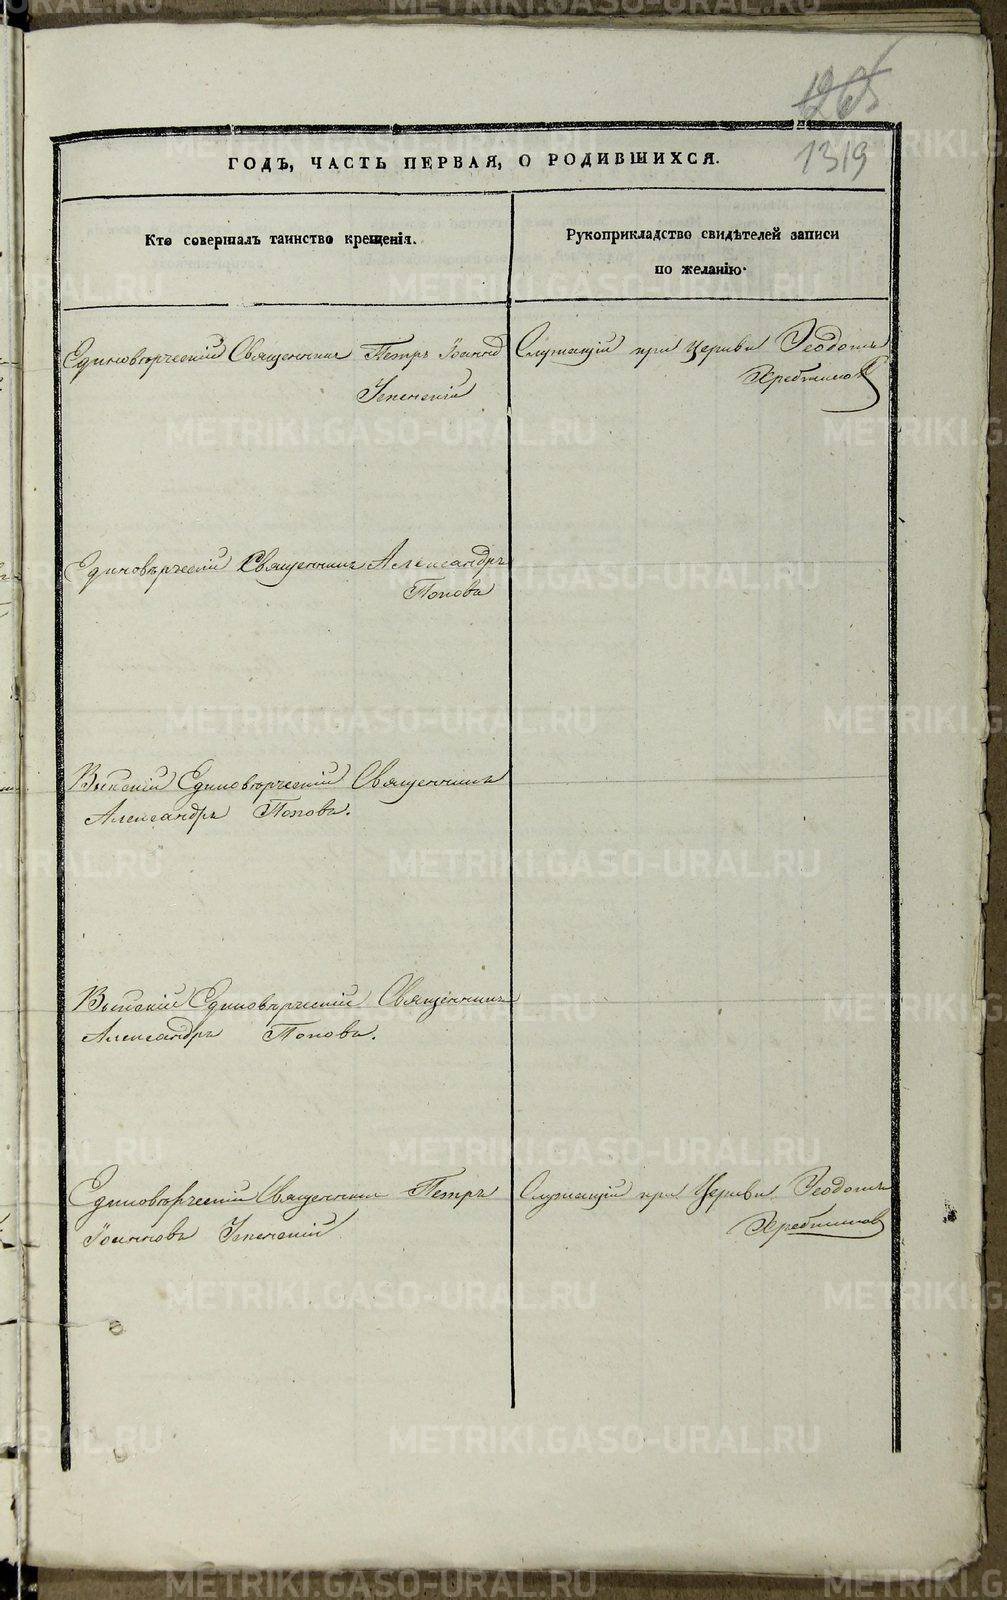 1265
1319
ГОДЪ, ЧАСТЬ ПЕРВАЯ, О РОДИВШИХСЯ.
Кто совершалъ таинство крещенія.
Рукоприкладство свидѣтелей записи
по желанію.
Единовѣрческій Священникъ Петръ Іоанно
Служащій при Церкви Ѳеодотъ
Хребтиковъ
Единовѣрческій Священникъ Александръ
Поповъ
Выйскій Единовѣрческій Священникъ
Александръ Поповъ.
Выйскій Единовѣрческій Священникъ
Александръ Поповъ.
Единовѣрческій Священникъ Петръ
Іоанновъ
Служащій при Церкви Ѳеодотъ
Хребтиковъ
METRIKI.GASO-URAL.RU